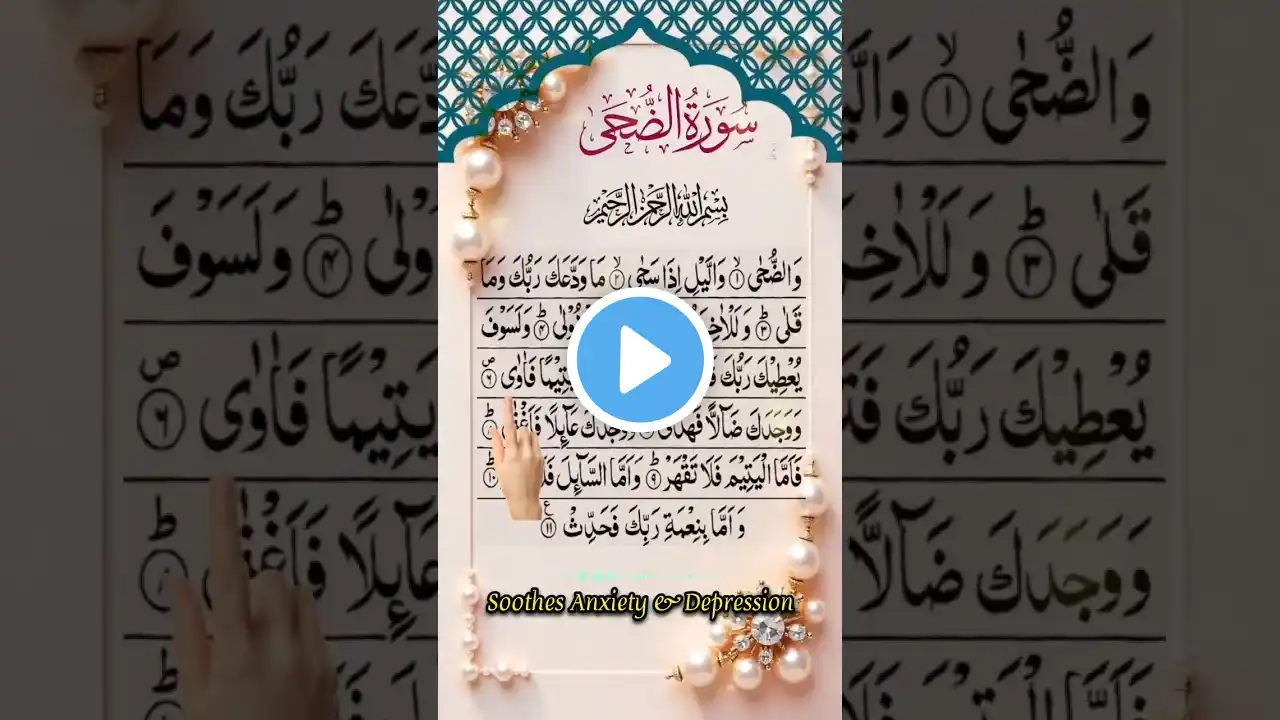 سُورَةُ الضُّحَى
بِسْمِ اللهِ الرَّحْمٰنِ الرَّحِيْمِ
وَالضُّحٰى ۙ﴿۱﴾ وَالَّيْلِ اِذَا سَجٰى ۙ﴿۲﴾ مَا وَدَّعَكَ رَبُّكَ وَمَا
قَلٰى ؕ﴿۳﴾ وَلَلْاٰخِ وْلٰى ؕ﴿۴﴾ وَلَسَوْفَ
يُعْطِيْكَ رَبُّكَ يَتِيْمًا فَاٰوٰى ۪﴿۶﴾
وَوَجَدَكَ ضَآلًّا فَهَدٰى وَوَجَدَكَ عَآئِلًا فَاَغْنٰى ؕ﴿۸﴾
فَاَمَّا الْيَتِيْمَ فَلَا تَقْهَرْ ؕ﴿۹﴾ وَاَمَّا السَّآئِلَ فَلَا ؕ﴿۱۰﴾
وَاَمَّا بِنِعْمَةِ رَبِّكَ فَحَدِّثْ ﴿۱۱﴾
Soothes Anxiety & Depression